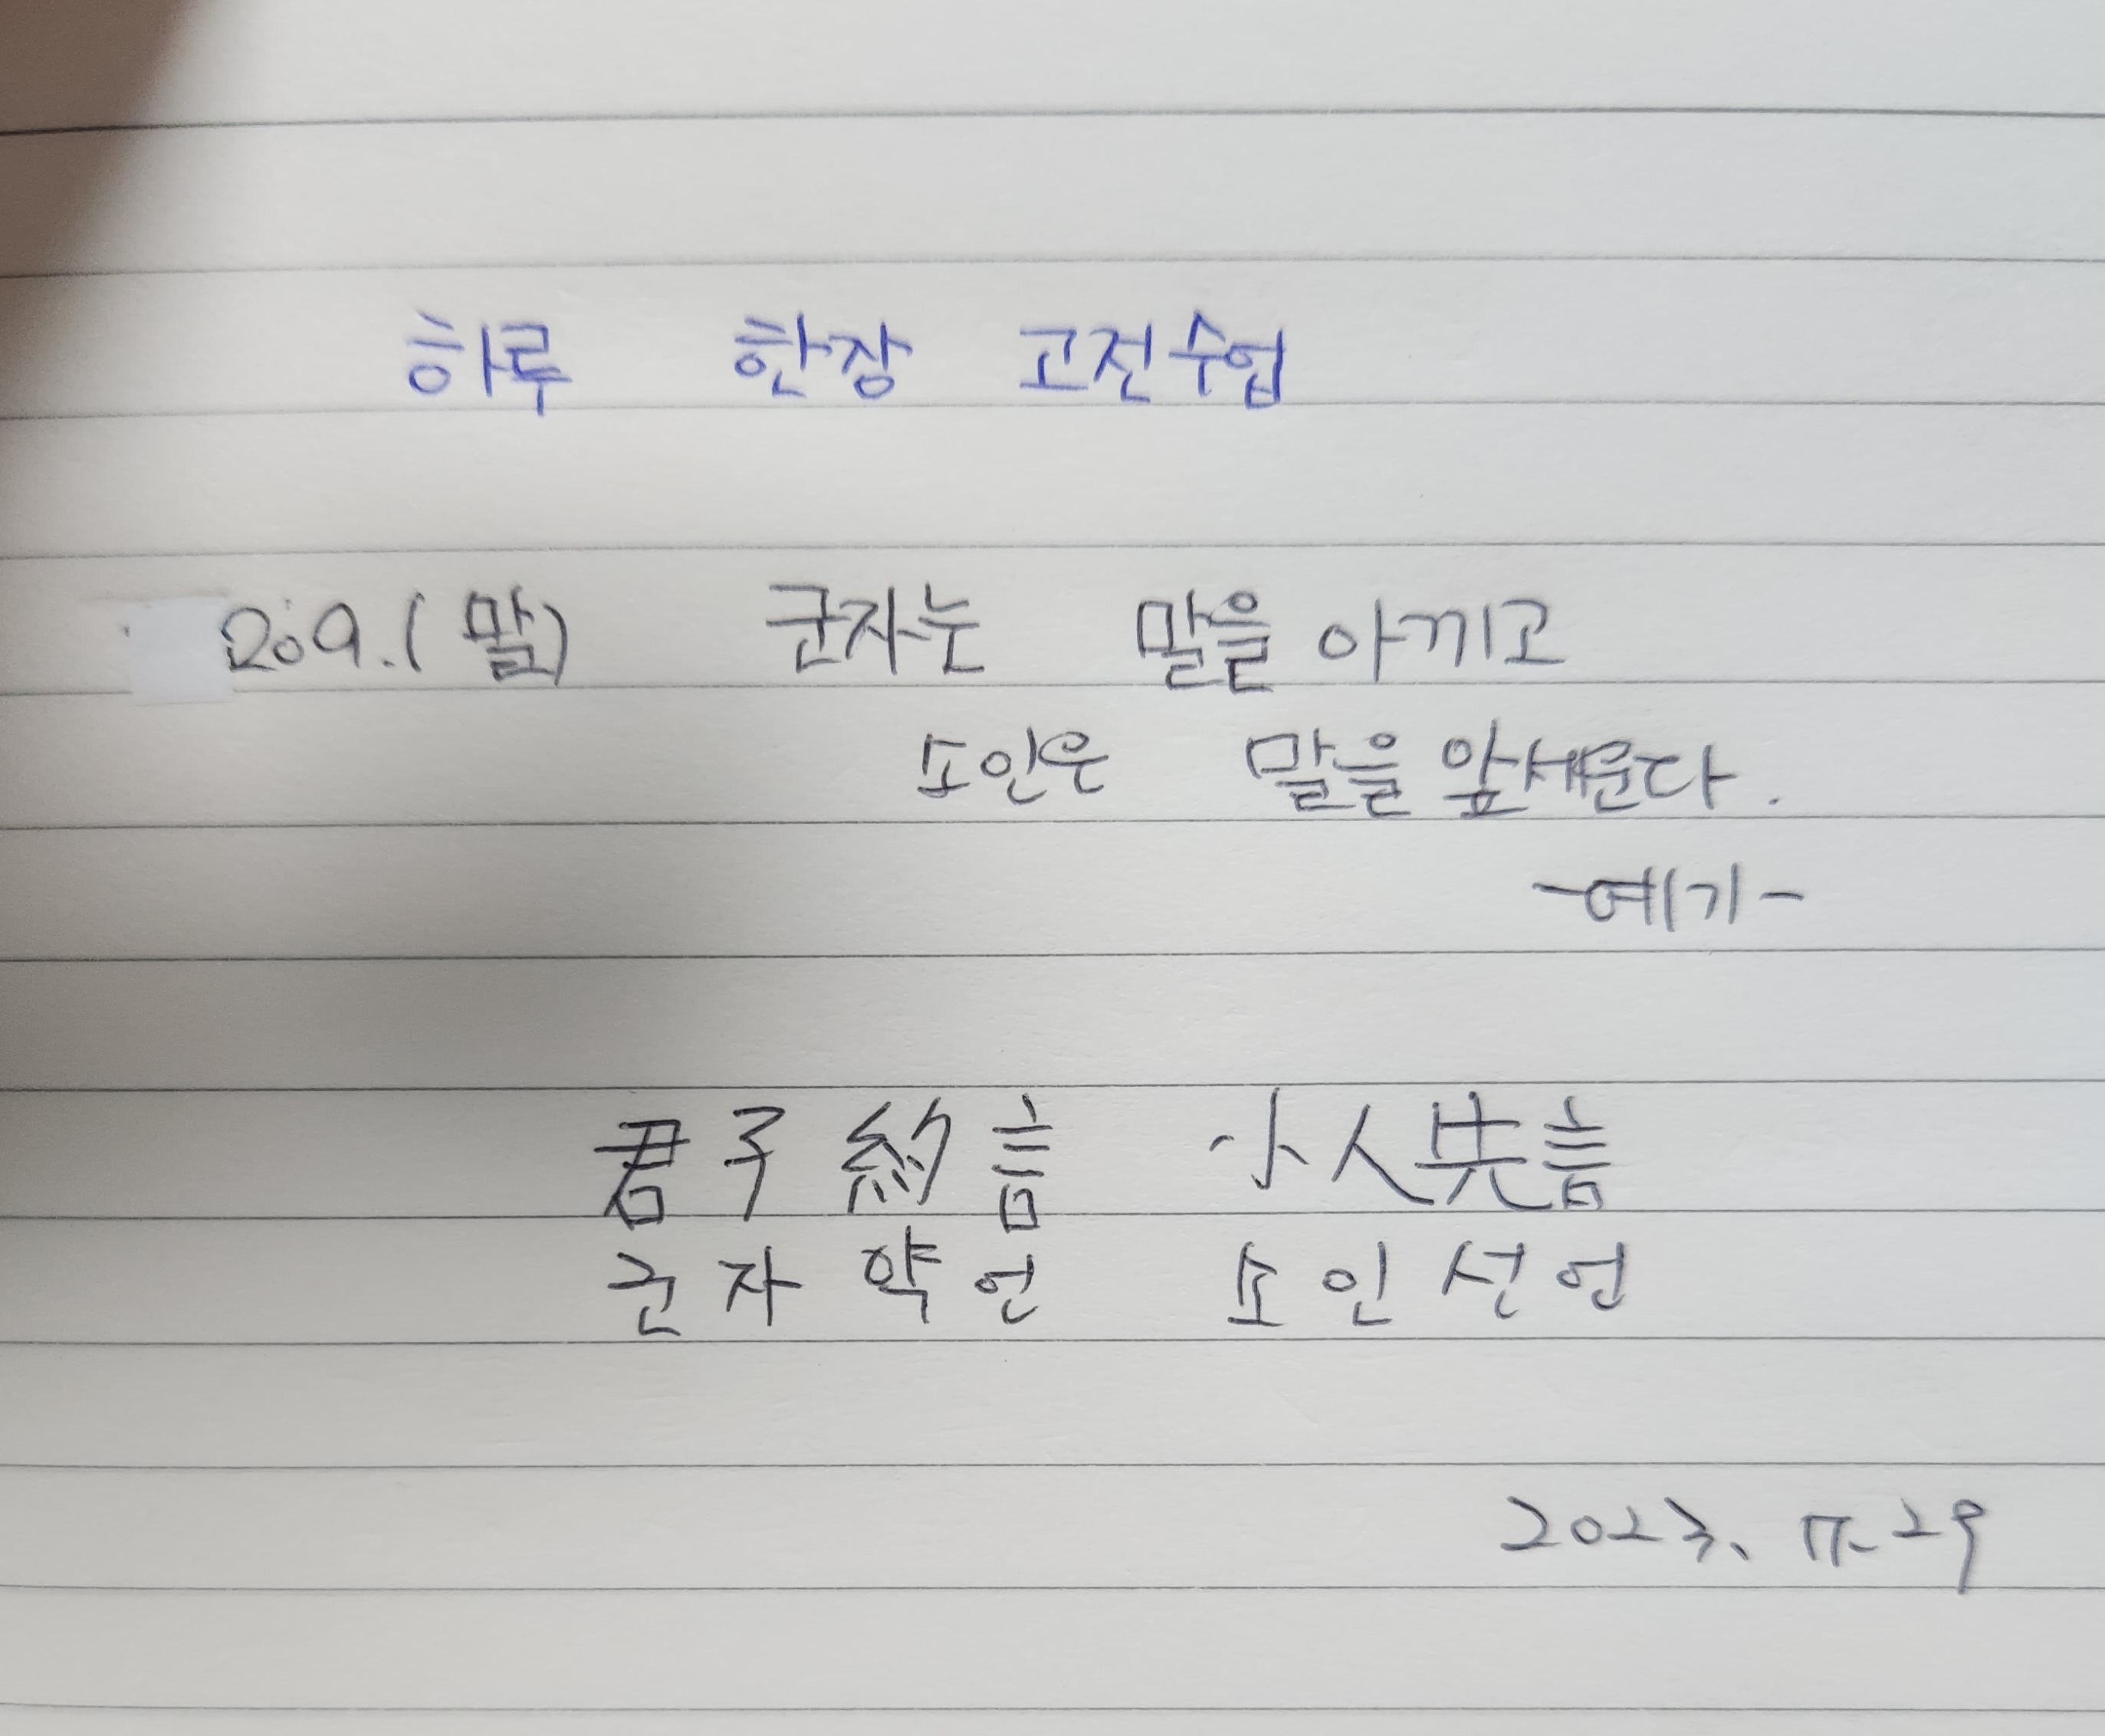 하루 한장 고전수업
209.(말) 군자는 말을 아끼고
소인은 말을 앞세운다.
-예기-
君子約言 小人先言
군자약언 소인선언
2023. 11. 29